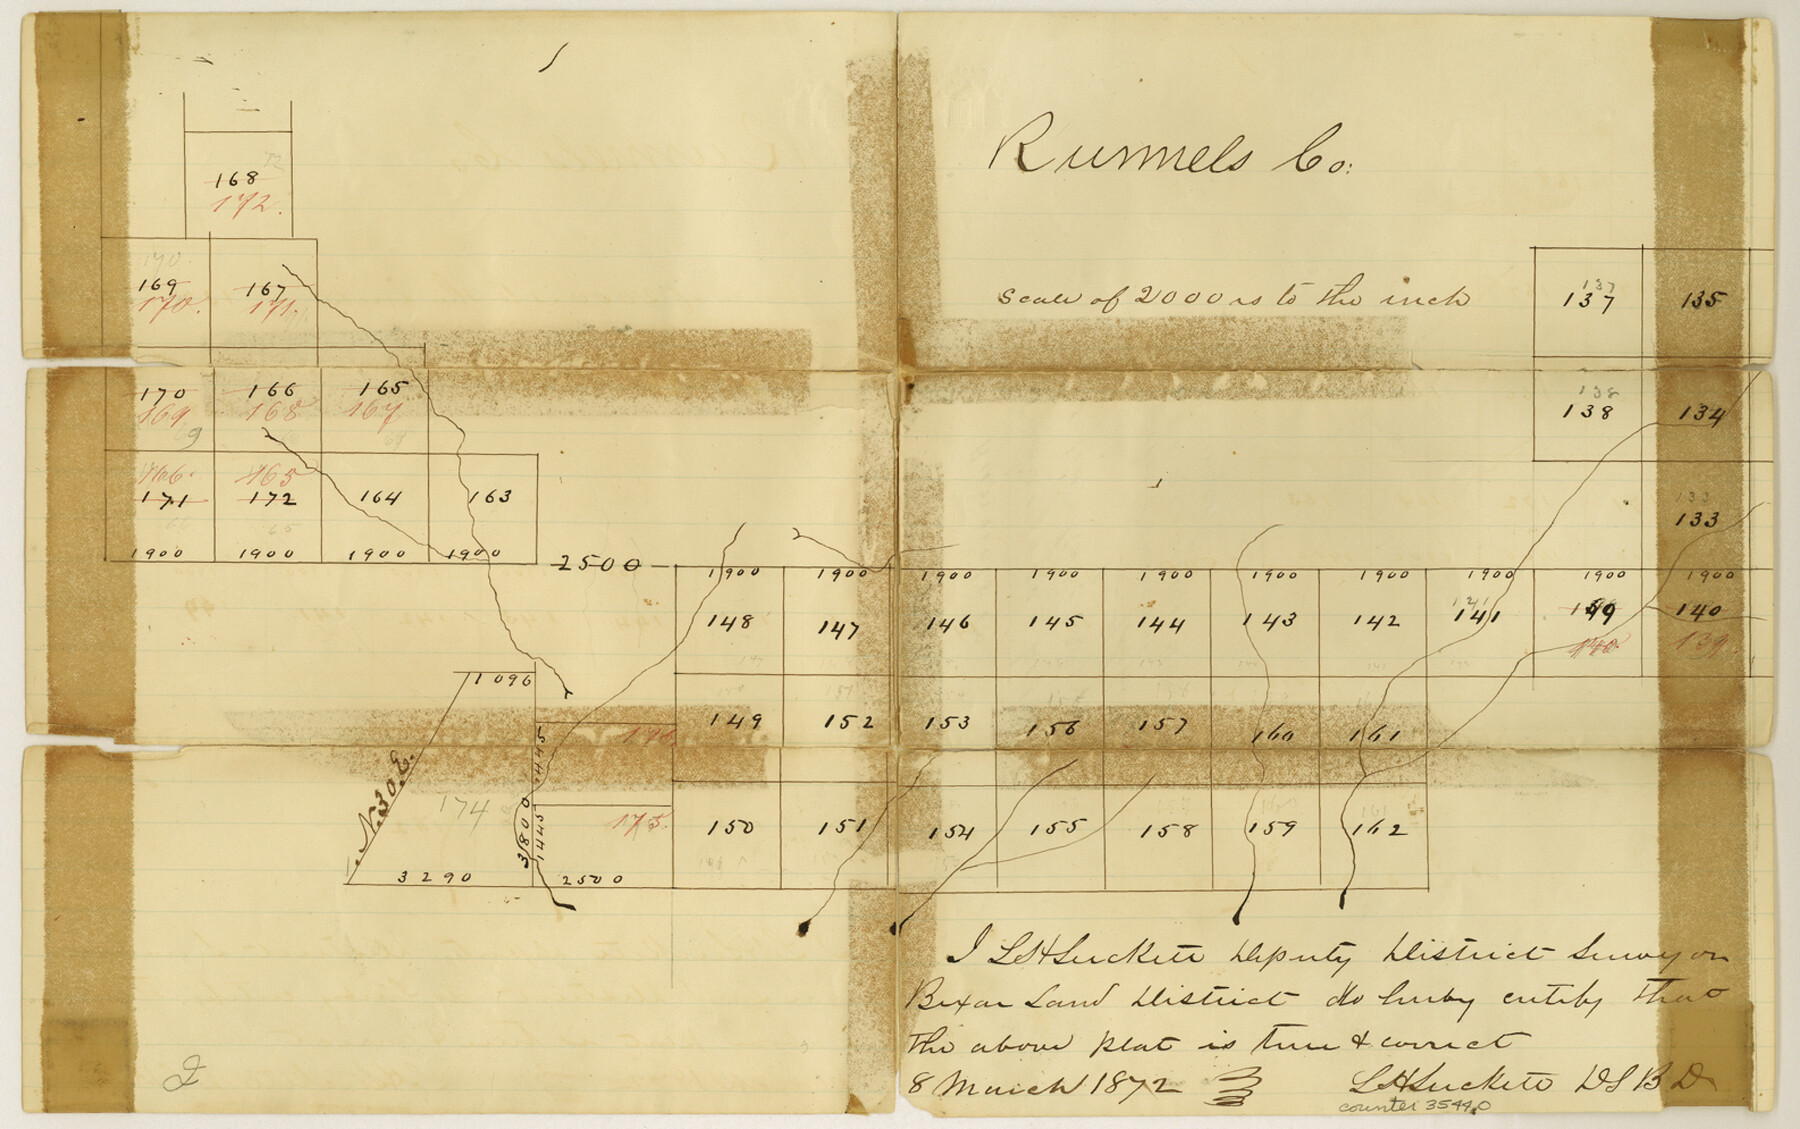 Runnels Co:
Scale of 2000 vs to the inch
168
172.
170.
169
170.
167
171.
137
137
135
170
169
9
166
168
165
167
138
138
134
166.
171
165
172
164
163
133
133
1900 1900 1900 1900
2500
1900 1900 1900 1900 1900 1900 1900 1900 1900 1900
148 147 146 145 144 143 142 141 140
141
140
139.
1096
149 152 153 156 157 160 161
N. 30. E.
174
3800
1445
1445
175.
150 151 154 155 158 159 162
3290
2500
I L H Luckett Deputy District Surveyor
Bexar Land District do hereby certify that
the above plat is true & correct
8 March 1872
L H Luckett D S B D
counter 35440